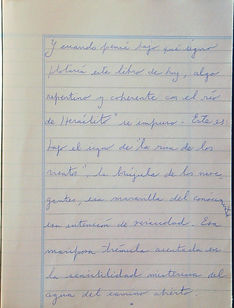 Y cuando pensé bajo qué signo
flotaría este libro de hoy, algo
repentino y coherente con el río
de Heráclito se impuso. Este es
bajo el signo de "la rosa de los
vientos", la brújula de los nave
gantes, esa maravilla del conocer
con intención de veracidad. Esa
mariposa trémula asentada en
la sensibilidad misteriosa del
agua del camino abierto